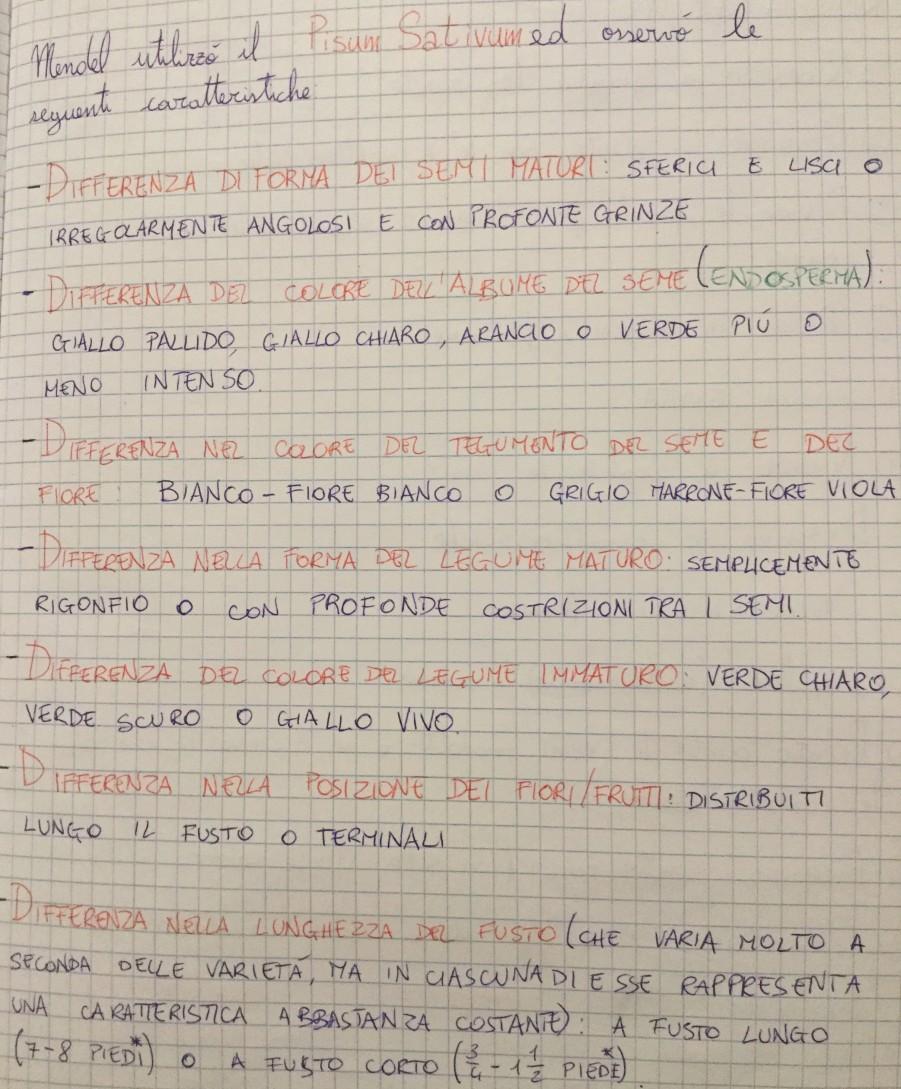 Mendel utilizzó il Pisum Sativum ed osservó le
seguenti caratteristiche
- DIFFERENZA DI FORMA DEI SEMI MATURI: SFERICI E LISCI O
IRREGOLARMENTE ANGOLOSI E CON PROFONTE GRINZE
- DIFFERENZA DEL COLORE DELL'ALBUME DEL SEME (ENDOSPERMA):
GIALLO PALLIDO, GIALLO CHIARO, ARANCIO O VERDE PIÚ O
MENO INTENSO.
- DIFFERENZA NEL COLORE DEL TEGUMENTO DEL SEME E DEL
FIORE: BIANCO-FIORE BIANCO O GRIGIO MARRONE-FIORE VIOLA
- DIFFERENZA NELLA FORMA DEL LEGUME MATURO: SEMPLICEMENTE
RIGONFIO O CON PROFONDE COSTRIZIONI TRA I SEMI.
- DIFFERENZA DEL COLORE DEL LEGUME IMMATURO: VERDE CHIARO,
VERDE SCURO O GIALLO VIVO.
- DIFFERENZA NELLA POSIZIONE DEI FIORI/FRUTTI: DISTRIBUITI
LUNGO IL FUSTO O TERMINALI
- DIFFERENZA NELLA LUNGHEZZA DEL FUSTO (CHE VARIA MOLTO A
SECONDA DELLE VARIETÁ, MA IN CIASCUNA DI ESSE RAPPRESENTA
UNA CARATTERISTICA ABBASTANZA COSTANTE): A FUSTO LUNGO
(7-8 PIEDI*) O A FUSTO CORTO (3/4 - 1 1/2 PIEDE*)